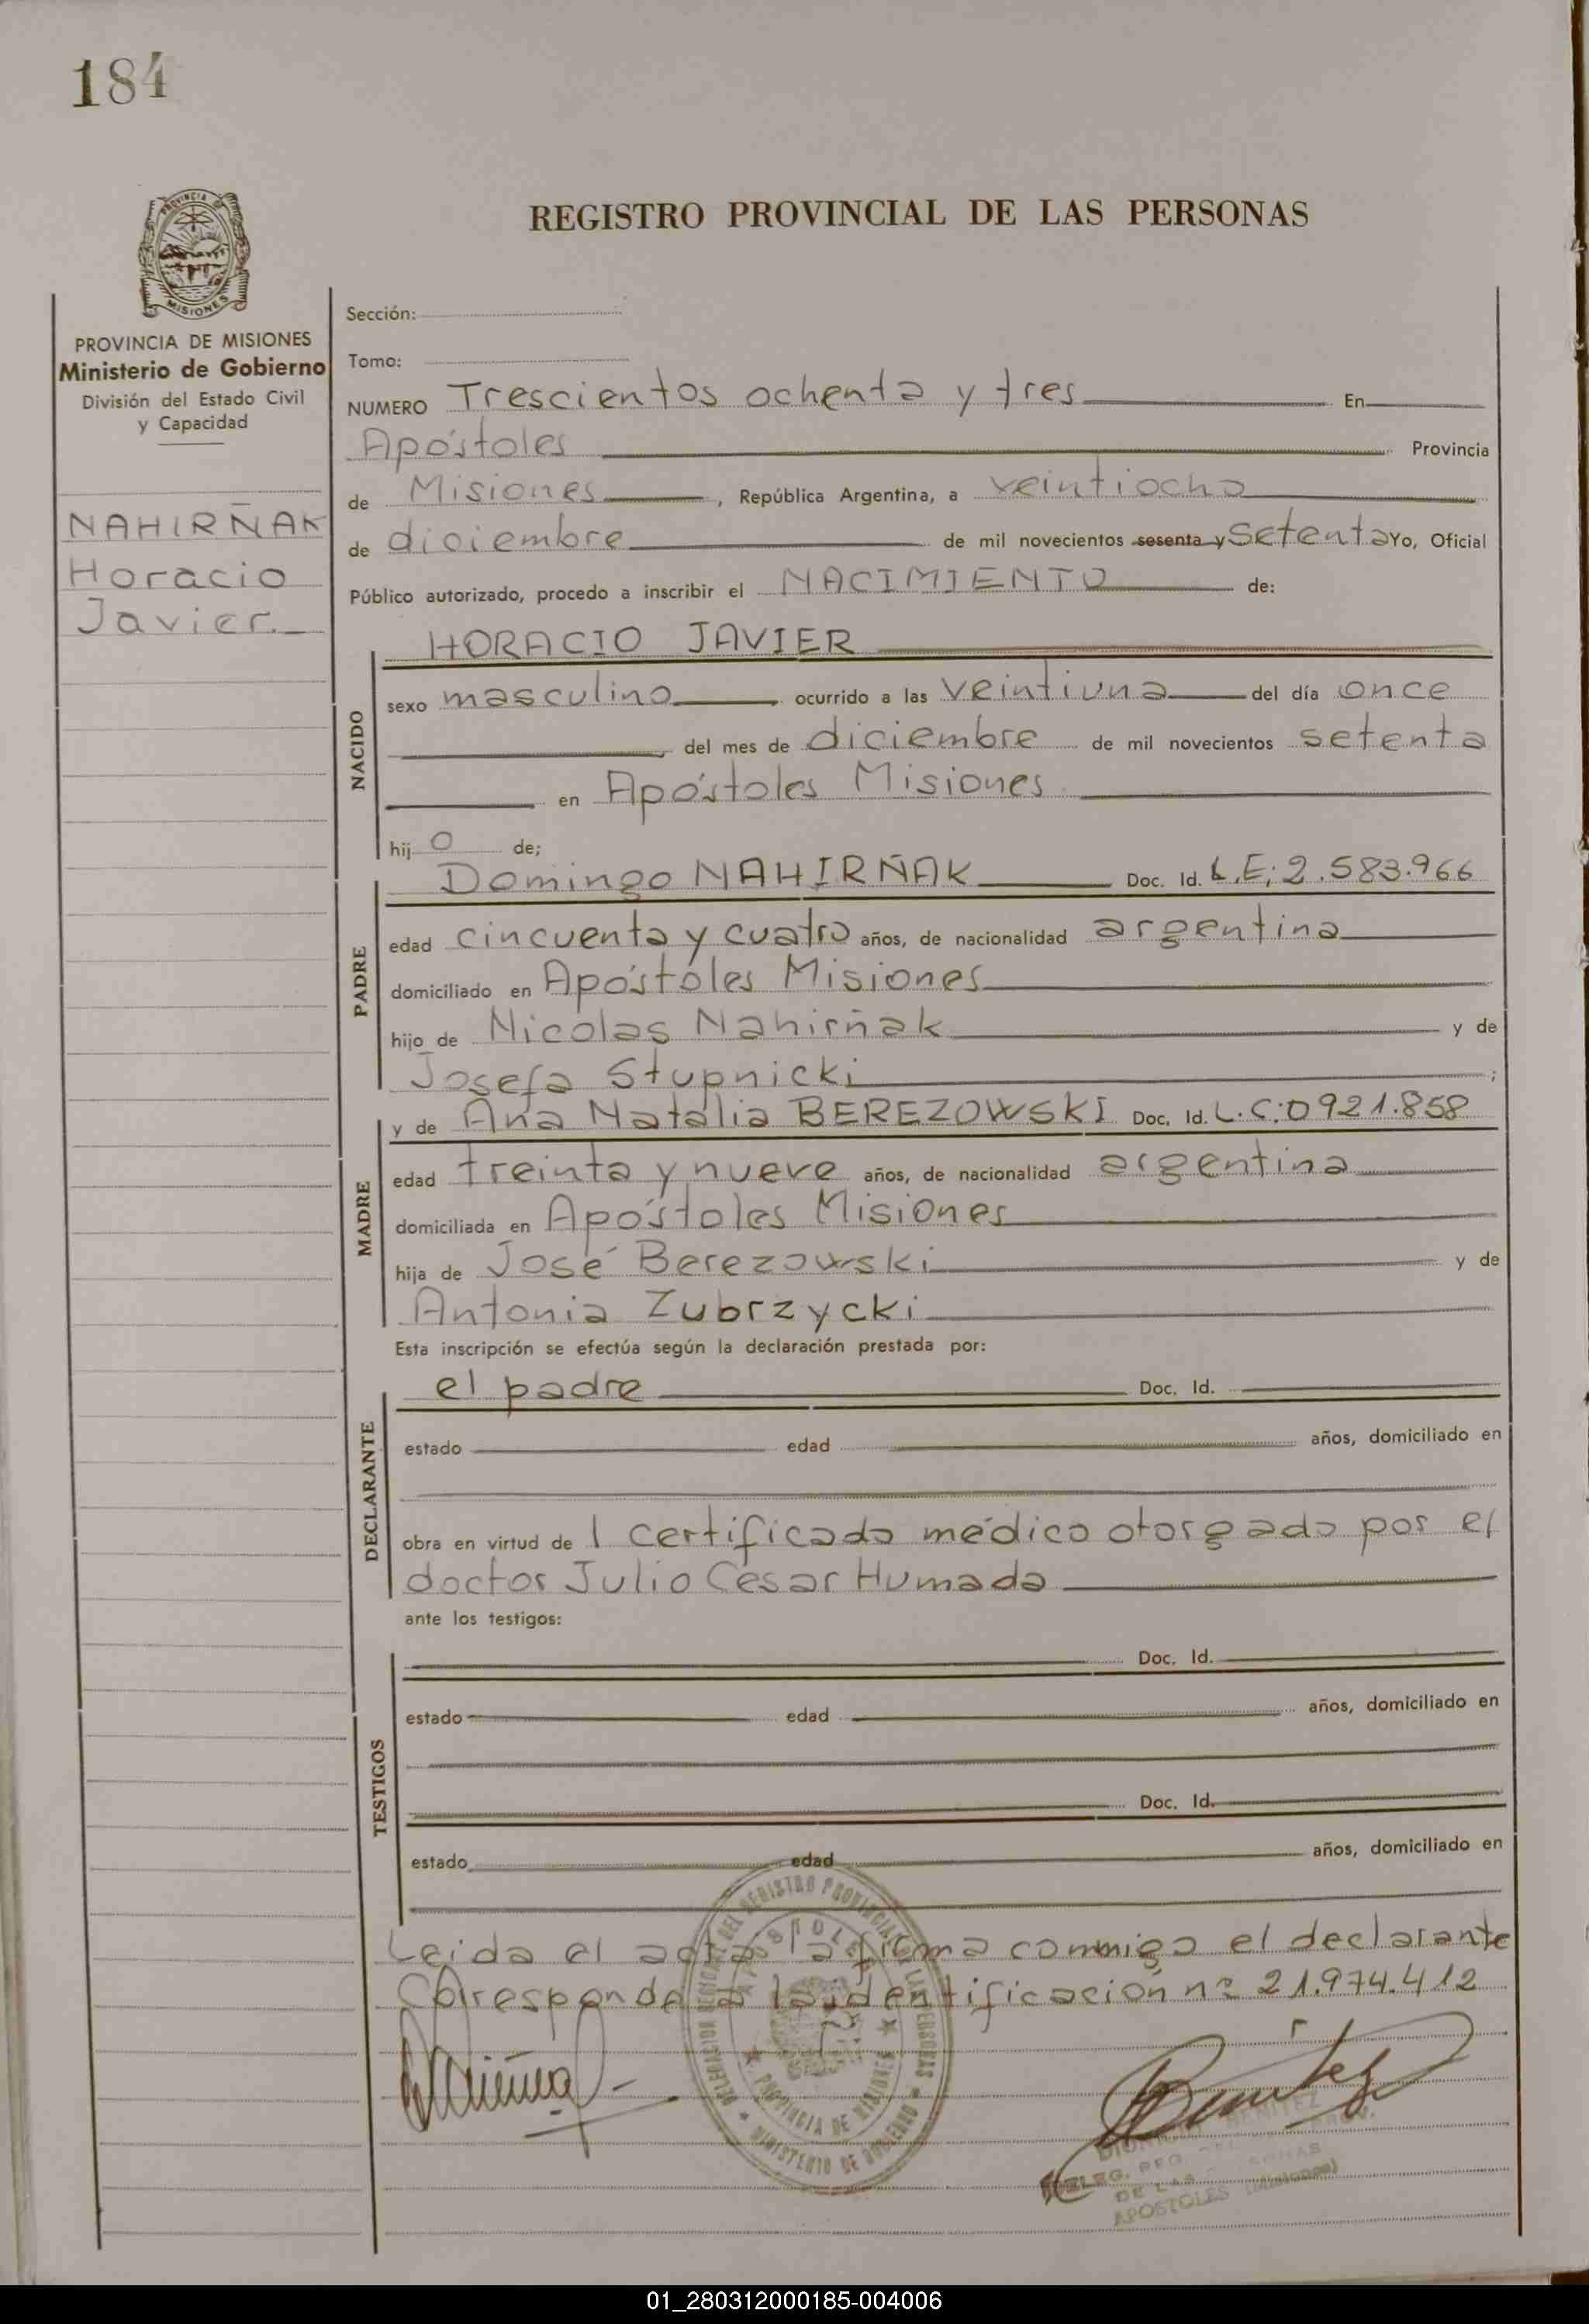 184
PROVINCIA DE
MISIONES
REGISTRO PROVINCIAL DE LAS PERSONAS
PROVINCIA DE MISIONES
Ministerio de Gobierno
División del Estado Civil
y Capacidad
NAHIRÑAK
Horacio
Javier.
Sección:
Tomo:
NUMERO Trescientos ochenta y tres En
Apóstoles Provincia
de Misiones, República Argentina, a veintiocho
de diciembre de mil novecientos sesenta y setenta Yo, Oficial
Público autorizado, procedo a inscribir el NACIMIENTO de:
HORACIO JAVIER
NACIDO
sexo masculino, ocurrido a las veintiuna del día once
, del mes de diciembre de mil novecientos setenta
en Apóstoles Misiones
hijo de;
PADRE
Domingo NAHIRÑAK Doc. Id. L.E; 2.583.966
edad cincuenta y cuatro años, de nacionalidad argentina
domiciliado en Apóstoles Misiones
hijo de Nicolas Nahirñak y de
Josefa Stupnicki;
MADRE
y de Ana Natalia BEREZOWSKI Doc. Id. L.C; 0921.858
edad treinta y nueve años, de nacionalidad argentina
domiciliada en Apóstoles Misiones
hija de José Berezowski y de
Antonia Zubrzycki
Esta inscripción se efectúa según la declaración prestada por:
DECLARANTE
el padre Doc. Id.
estado edad años, domiciliado en
obra en virtud de 1 certificado médico otorgado por el
doctor Julio Cesar Humada
ante los testigos:
TESTIGOS
Doc. Id.
estado edad años, domiciliado en
Doc. Id.
estado edad años, domiciliado en
Leida el acta, la firma conmigo el declarante
Coresponde a la identificación nº 21.974.412
DELEGACION DEL REGISTRO PROVINCIAL DE LAS PERSONAS
APOSTOLES
PROVINCIA DE MISIONES
MINISTERIO DE GOBIERNO
Benitez
BENITEZ
DELEG. REG. PROV.
DE LAS PERSONAS
APOSTOLES (Misiones)
01_280312000185-004006